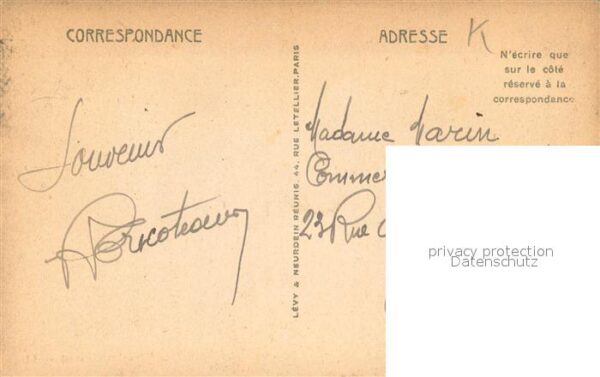 CORRESPONDANCE
ADRESSE
K
N'écrire que
sur le côté
réservé à la
correspondance
Souvenir
LÉVY & NEURDEIN RÉUNIS, 44, RUE LETELLIER, PARIS
Madame Marin
Commer
23 Rue
privacy protection
Datenschutz